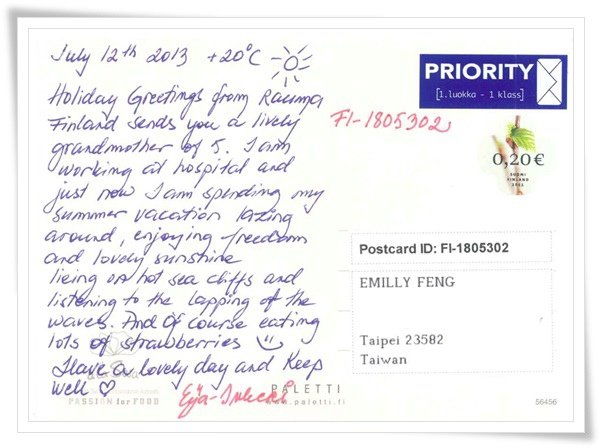 July 12th 2013 +20°C
Holiday Greetings from Rauma
Finland sends you a lively
grandmother of 5. I am
working at hospital and
just now I am spending my
summer vacation lazing
around, enjoying freedom
and lovely sunshine
lieing on hot sea cliffs and
listening to the lapping of the
waves. And Of course eating
lots of strawberries
Have a lovely day and Keep
well ♡
PRIORITY
[1.luokka - 1 klass]
FI-1805302
0,20 €
SUOMI
FINLAND
2011
Postcard ID: FI-1805302
EMILLY FENG
Taipei 23582
Taiwan
PASSION for FOOD
PALETTI
www.paletti.fi
56456